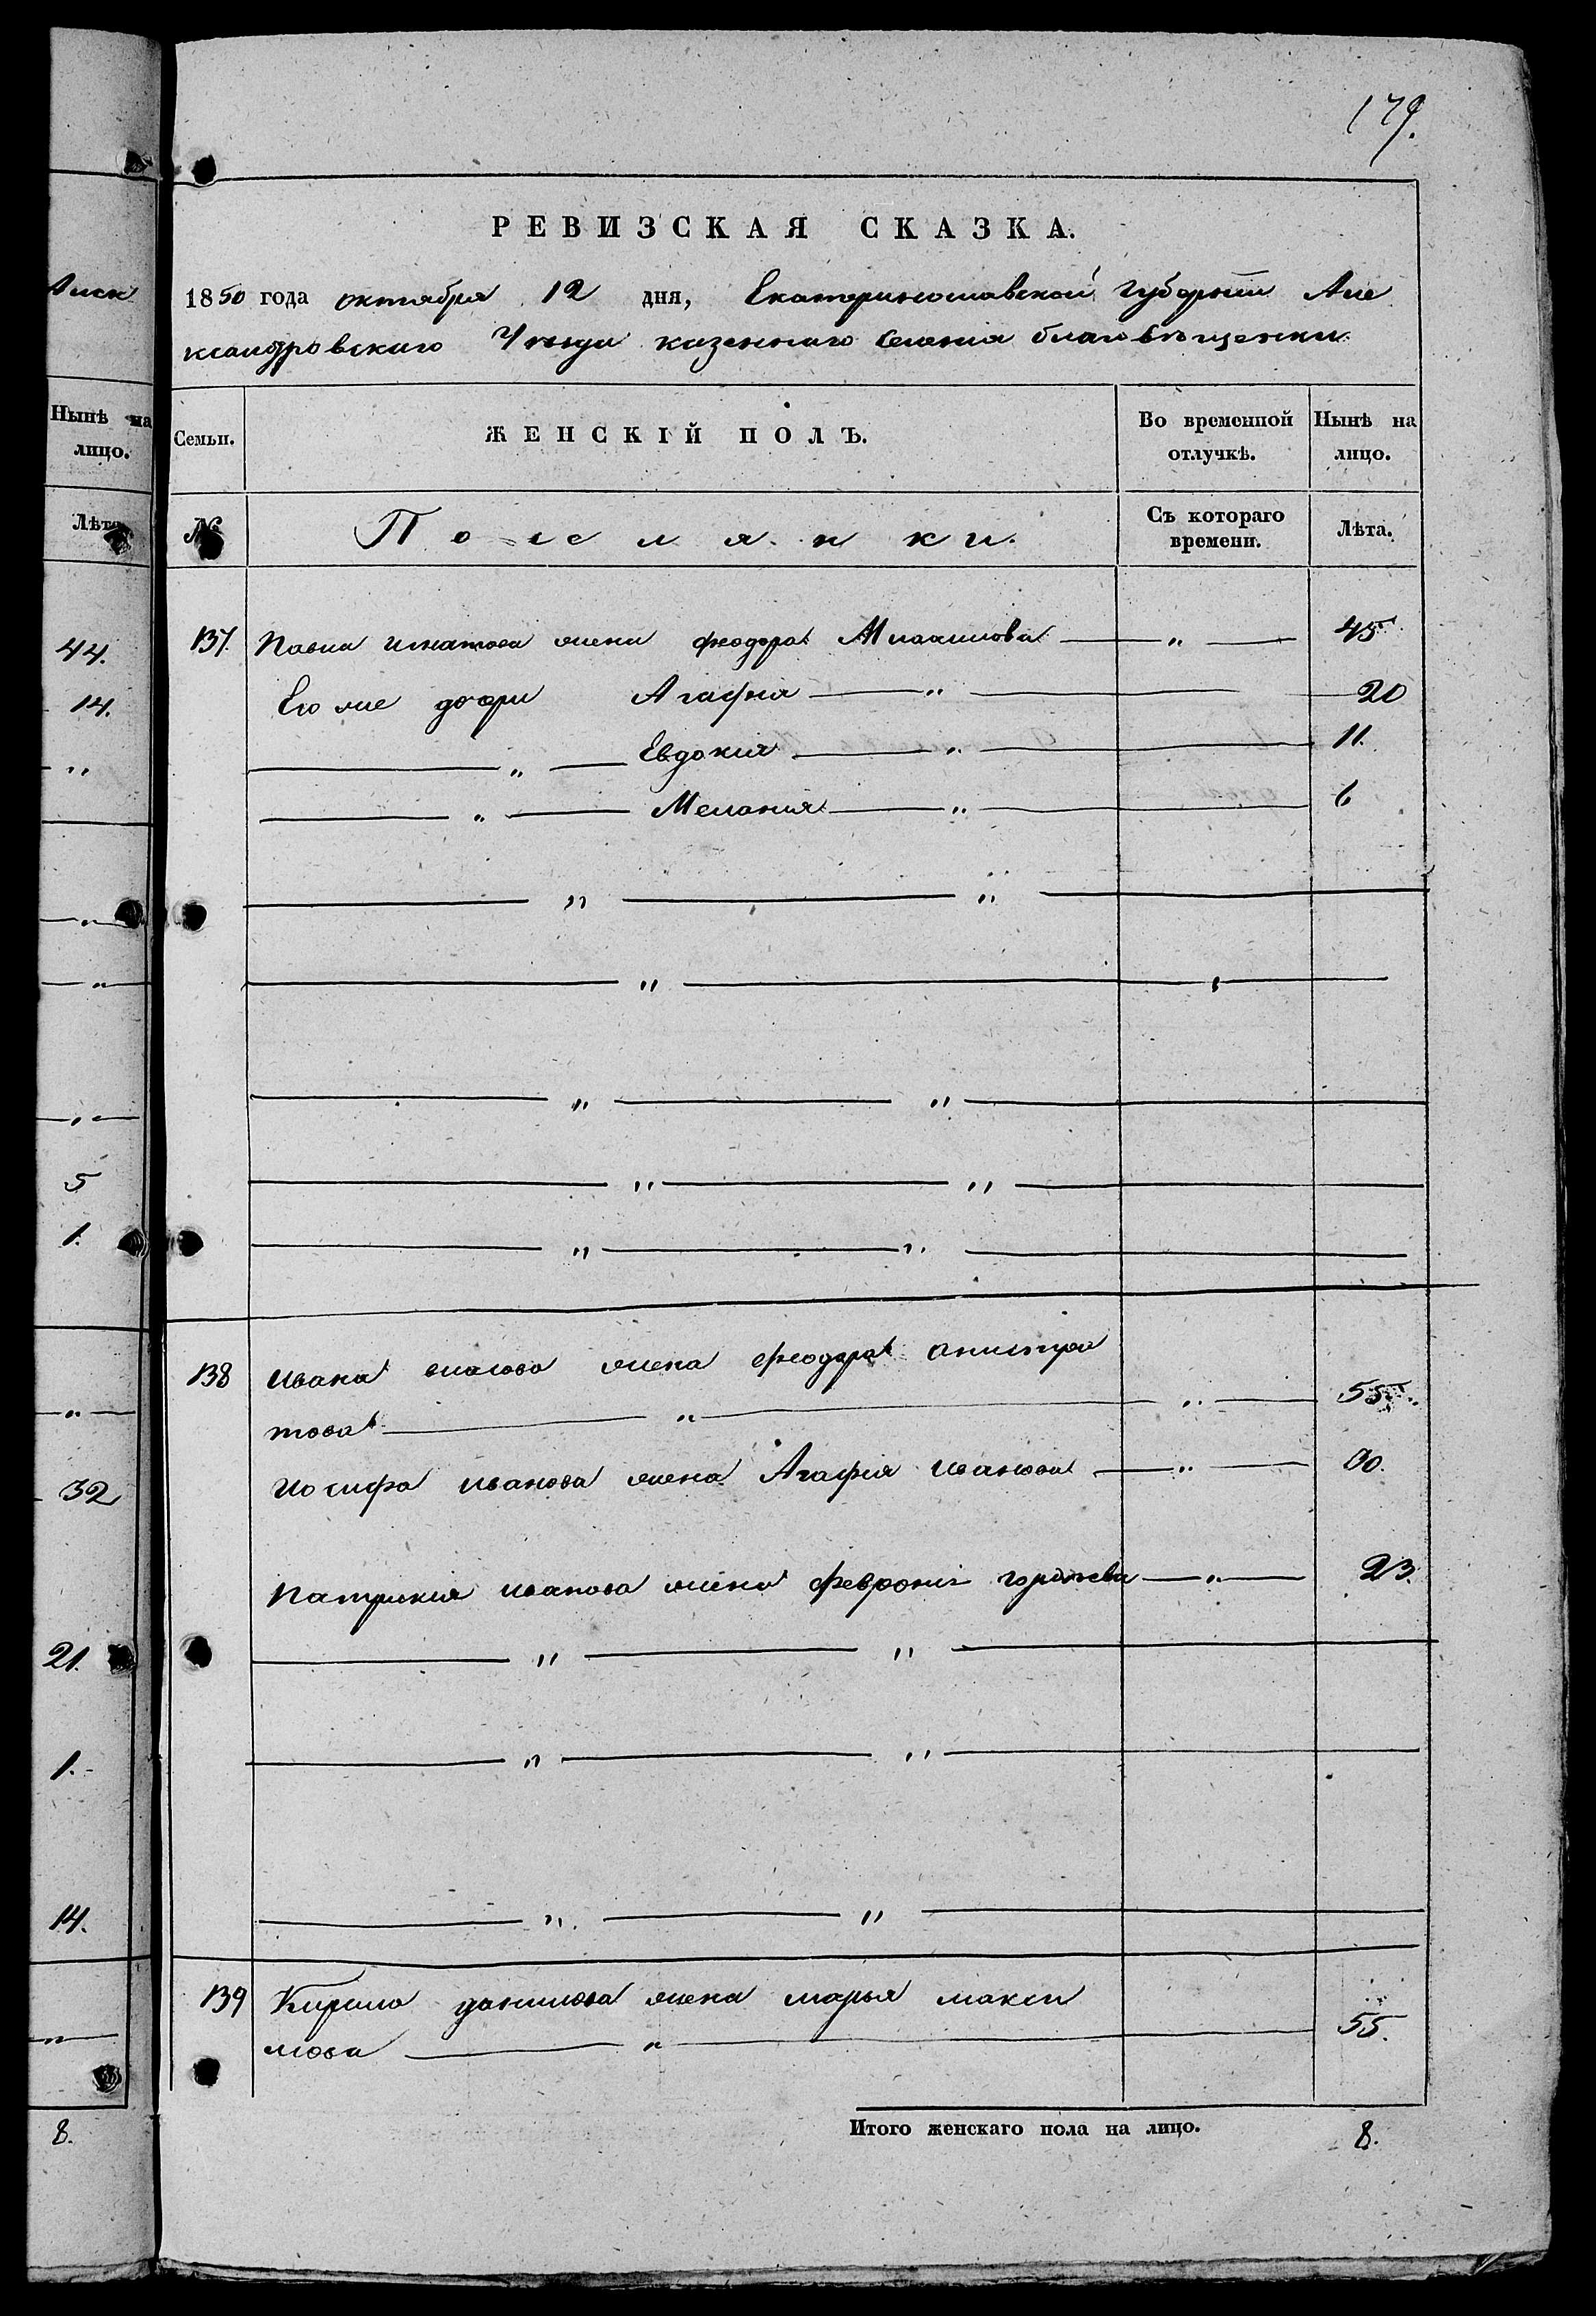 179.
РЕВИЗСКАЯ СКАЗКА.
1850 года октября 12 дня, Екатеринославской Губернии Але
ксандровскаго Уезда казеннаго Селения благовѣщенки
Нынѣ на лицо.
Лѣта
44.
14.
"
"
"
"
5
1.
"
32
21.
1.
14.
"
8.
Семьи.
ЖЕНСКІЙ ПОЛЪ.
Во временной отлучкѣ.
Нынѣ на лицо.
№
Поселянки.
Съ котораго времени.
Лѣта.
137. Павла игнатова жена феодора " 45
Его же дочри Агафия " 20
" Евдокия " 11.
" Мелания " 6
" "
"
" "
" "
" "
138 ивана власова жена феодора анистра
това " " 55.
иосифа иванова жена Агафия иванова " 30.
патрикия иванова жена феврония " 23.
" "
" "
" "
139 Кирила данилова жена марья макси
мова " 55.
Итого женскаго пола на лицо. 8.